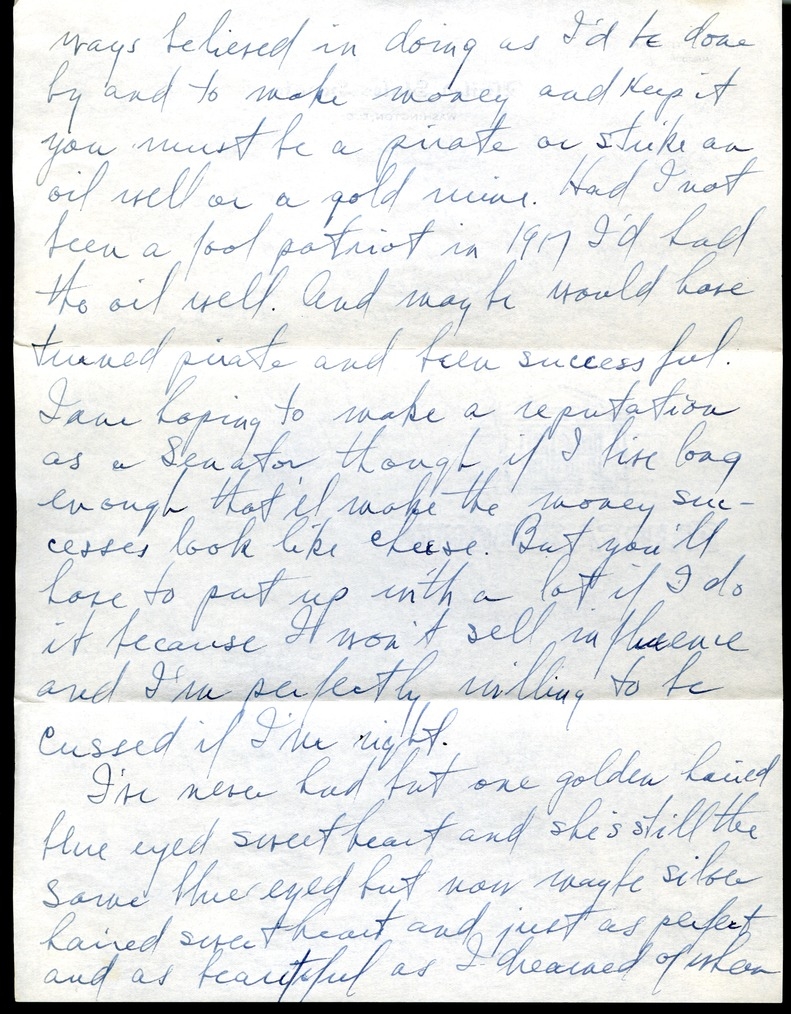 ways believed in doing as I'd be done
by and to make money and keep it
you must be a pirate or strike an
oil well or a gold mine. Had I not
been a fool patriot in 1917 I'd had
the oil well. And maybe would have
turned pirate and been successful.
I am hoping to make a reputation
as a Senator though if I live long
enough that'll make the money suc-
cesses look like cheese. But you'll
have to put up with a lot if I do
it because I won't sell influence
and I'm perfectly willing to be
cussed if I'm right.
I've never had but one golden haired
blue eyed sweetheart and she's still the
same blue eyed but now maybe silver
haired sweetheart and just as perfect
and as beautiful as I dreamed of when